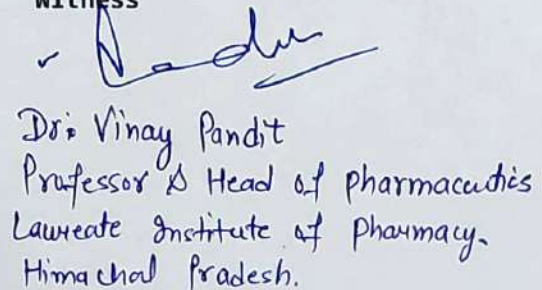 Witness
Dr: Vinay Pandit
Professor & Head of pharmaceutics
Laureate Institute of pharmacy.
Himachal Pradesh.